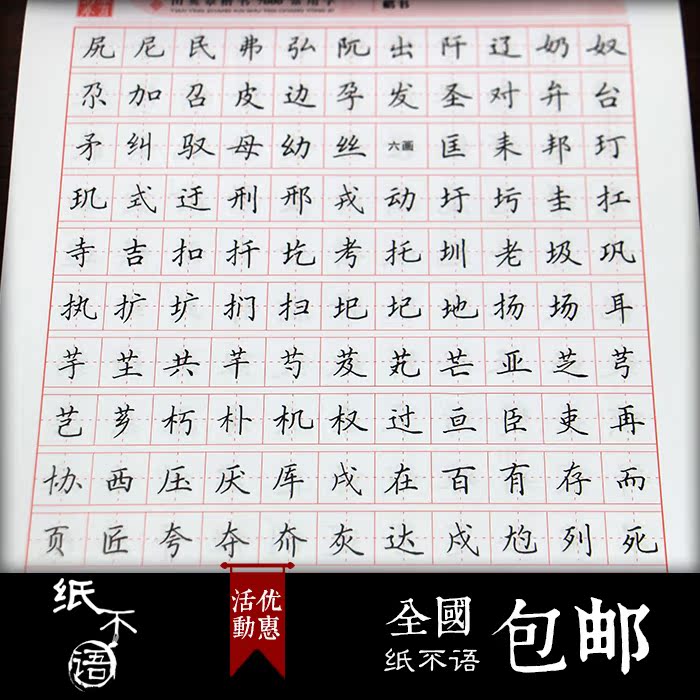 尻尼民弗弘阮出阡辽奶奴
尕加召皮边孕发圣对弁台
矛纠驭母幼丝六画匡耒邦玎
玑式迂刑邢戎动圩圬圭扛
寺吉扣扦圪考托圳老圾巩
执扩圹扪扫圯圮地扬场耳
芋芏共芊芍芨芄芒亚芝芎
芑芗朽朴机权过亘臣吏再
协西压厌厍戌在百有存而
页匠夸夺夼灰达戍尥列死
纸不语
优惠
活動
全國
纸不语
包邮